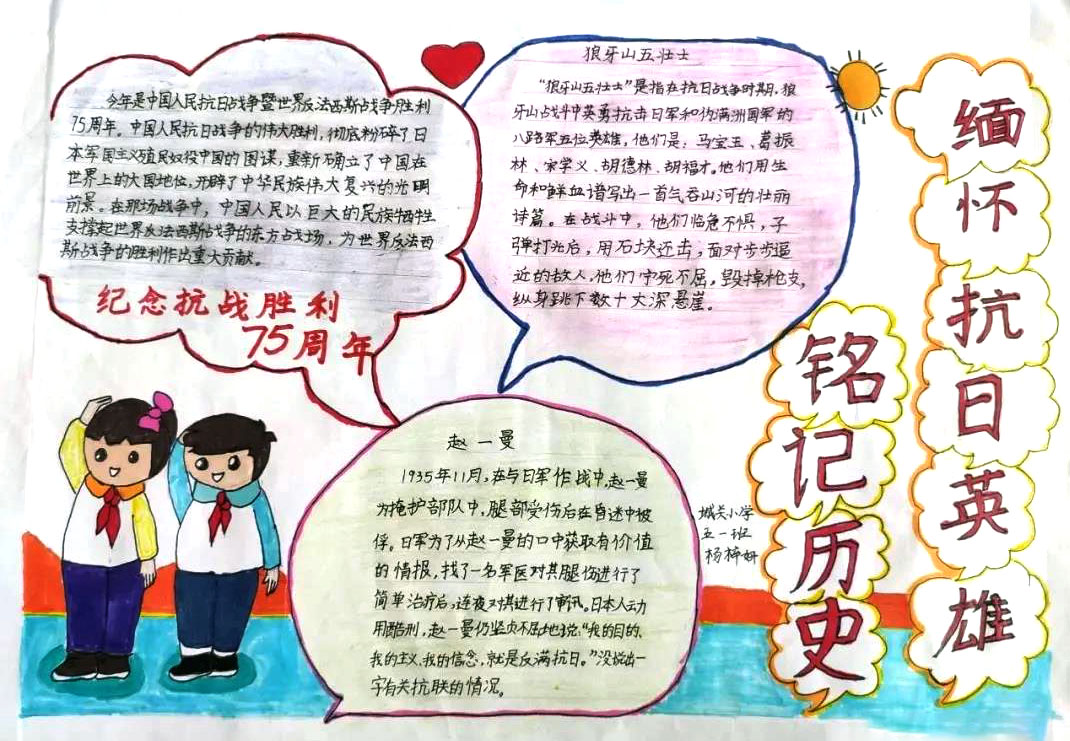 缅怀抗日英雄
铭记历史
今年是中国人民抗日战争暨世界反法西斯战争胜利
75周年。中国人民抗日战争的伟大胜利,彻底粉碎了日
本军国主义殖民奴役中国的图谋,重新确立了中国在
世界上的大国地位,开辟了中华民族伟大复兴的光明
前景。在那场战争中,中国人民以巨大的民族牺牲
支撑起世界反法西斯战争的东方占战场,为世界反法西
斯战争的胜利作出重大贡献。
纪念抗战胜利
75周年
狼牙山五壮士
“狼牙山五壮士”是指在抗日战争时期,狼
牙山战斗中英勇抗击日军和伪满洲国军的
八路军五位英雄。他们是:马宝玉、葛振
林、宋学义、胡德林、胡福才。他们用生
命和鲜血谱写出一首气吞山河的壮丽
诗篇。在战斗中,他们临危不惧,子
弹打光后,用石块还击,面对步步逼
近的敌人,他们宁死不屈,毁掉枪支,
纵身跳下数十丈深悬崖。
赵一曼
1935年11月,在与日军作战中,赵一曼
为掩护部队中,腿部受伤后在昏迷中被
俘。日军为了从赵一曼的口中获取有价值
的情报,找了一名军医对其腿伤进行了
简单治疗后,连夜对其进行了审讯。日本人动
用酷刑,赵一曼仍坚贞不屈地说:“我的目的,
我的主义,我的信念,就是反满抗日。”没说出一
字有关抗联的情况。
城关小学
五一班
杨梓妍